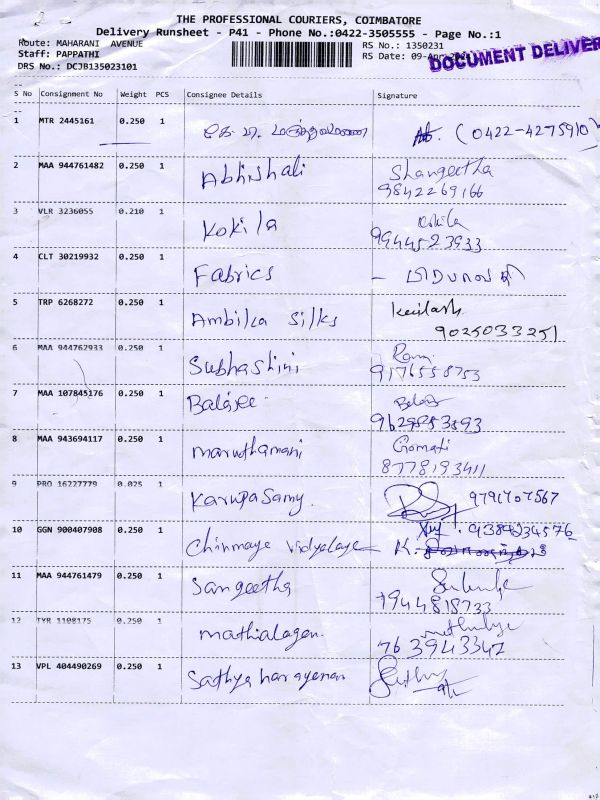 THE PROFESSIONAL COURIERS, COIMBATORE
Delivery Runsheet - P41 - Phone No.:0422-3505555 - Page No.:1
Route: MAHARANI AVENUE
RS No.: 1350231
Staff: PAPPATHI
RS Date: 09-Apr
DOCUMENT DELIVER
DRS No.: DCJB135023101
S No Consignment No Weight PCS Consignee Details Signature
1 MTR 2445161 0.250 1 (0422-4275910)
2 MAA 944761482 0.250 1 Abhishali Shangeetha
9842269166
3 VLR 3236055 0.210 1 Kokila Kokila
9944523933
4 CLT 30219932 0.250 1 Fabrics -
5 TRP 6268272 0.250 1 Ambika Silks Kailash
9025033251
6 MAA 944762933 0.250 1 Subhashini Ram
9176558753
7 MAA 107845176 0.250 1 Balajee
9629853893
8 MAA 943694117 0.250 1 maruthamani Gomati
8778193411
9 PRO 16227779 0.025 1 Karupasamy. 9791707567
10 GGN 900407908 0.250 1 Chinmaye Vidyalaye 9384234576
K.
11 MAA 944761479 0.250 1 Sangeetha
7944818733
12 TYR 1108175 0.250 1 mathialagan.
763943342
13 VPL 404490269 0.250 1 Sathya narayanan